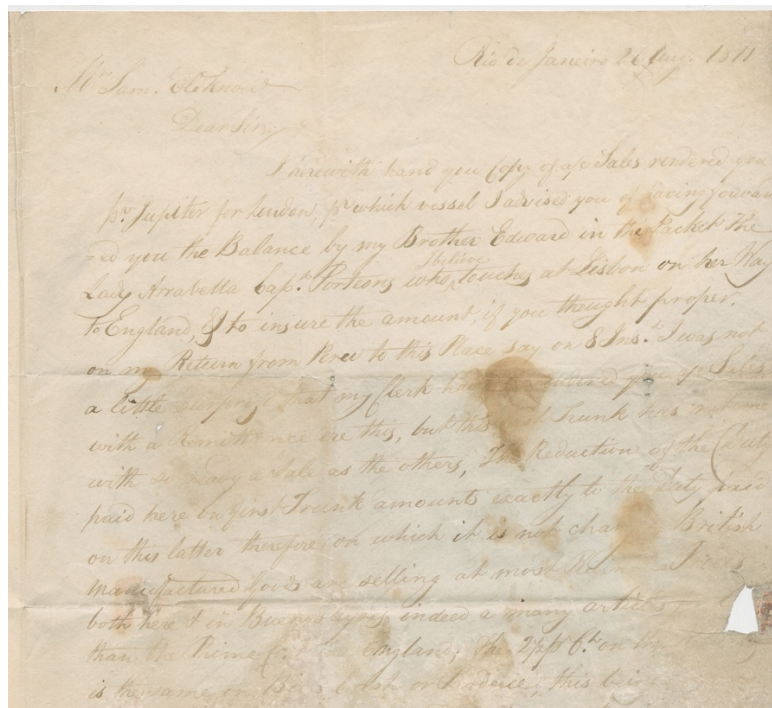 Rio de Janeiro 26 Aug. 1811
Mr. Saml. Oldknow
Dear Sir,
I herewith hand you Copy of a/c Sales rendered you
pr. Jupiter for London, pr. which vessel I advised you of having forward
=ed you the Balance by my Brother Edward in the Packet The
Lady Arrabella Capt. Porteous who, I believe touches at Lisbon on her Way
to England, & to insure the amount, if you thought proper.
on my Return from here to this Place say on 8 Inst. I was not
a little surprised that my Clerk had rendered you Sales
with a Remittance ere this, but this Trunk has not met
with so ready a Sale as the others, The Reduction of the Duty
paid here on first Trunk amounts exactly to the Duty paid
on this latter therefore, on which it is not British
manufactured Goods are selling at most Prices
both here & in Buenos Ayres, indeed a many articles
than the Prime Cost in England, the 2 pp Ct. on the
is the same on this